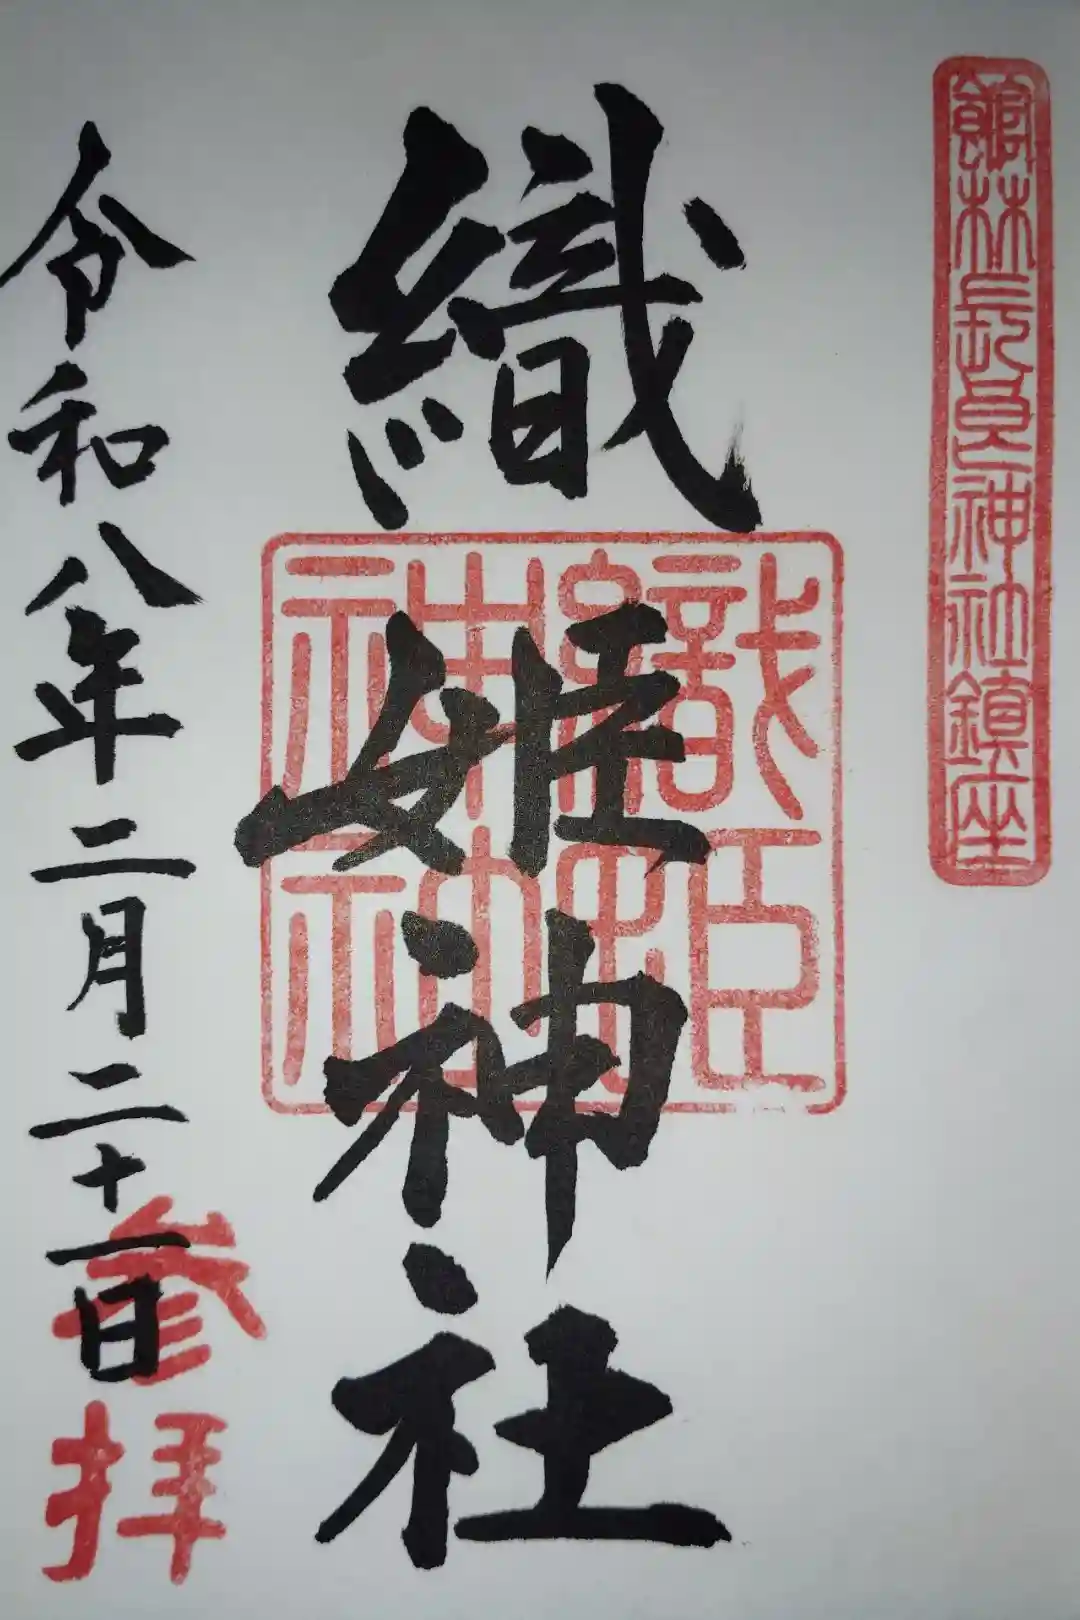 館林長良神社鎮座
織姫神社
織姫神社
神紳
令和八年二月二十一日
参拝